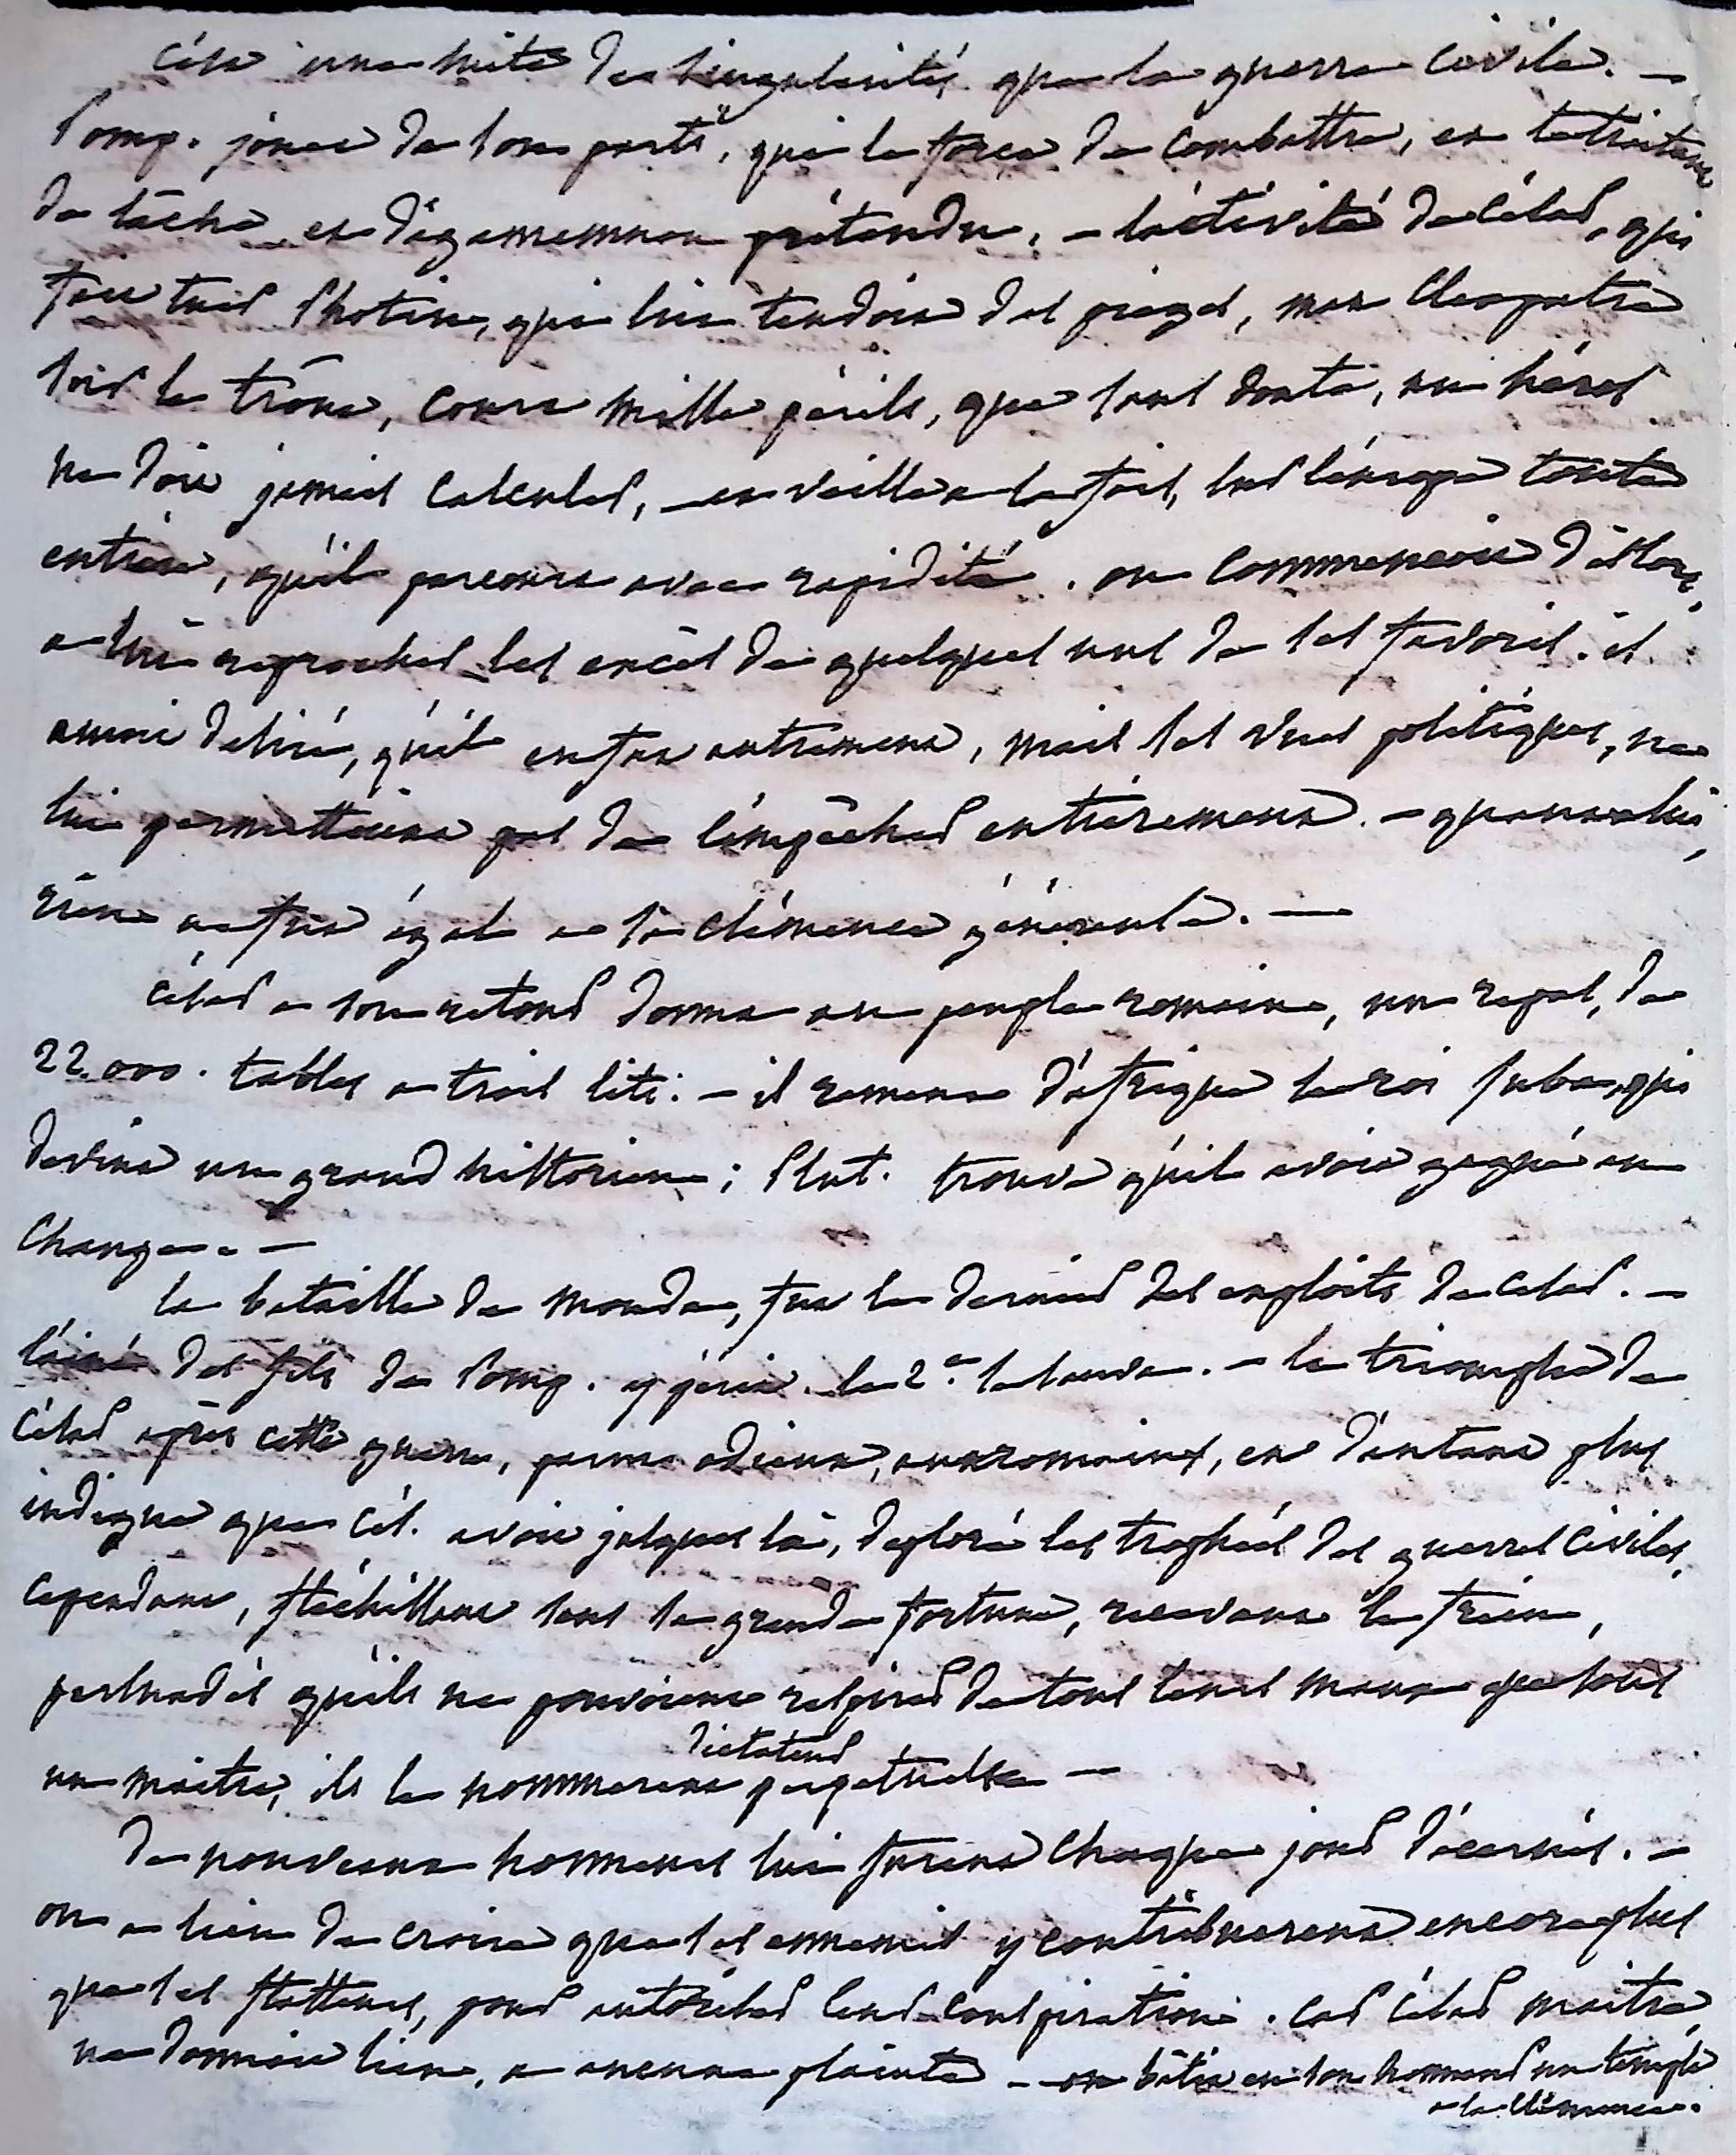 c'est une suite de singularités que la guerre civile. —
Pomp. jouet de son parti, qui le force de combattre, en le traitant
de lâche et d'agamemnon prétendu. — l'activité de César, qui
fait tuer Photin, qui lui tendoit des pièges, met Cléopatre
sur le trône, court mille périls, que sans doute, un héros
ne doit jamais calculer, — et veille a la fois, sur l'europe toute
entière, qu'il parcourt avec rapidité. on commencoit d'allors,
a lui reprocher les excès de quelques uns de ses favoris. il
auroit desiré, qu'il en fut autrement, mais ses vues politiques, ne
lui permettoient pas de l'empêcher entièrement. — quant a lui,
rien ne fut égal a sa clémence générale. —
César a son retour donna au peuple romain, un repas, de
22 000. tables a trois lits. — il ramena d'afrique le roi Juba, qui
devint un grand historien ; Plut. trouve qu'il avoit gagné au
change. —
la bataille de Monda, fut le dernier des exploits de César. —
l'ainé des fils de Pomp. y périt. le 2e. se sauva. — le triomphe de
César après cette guerre, parut odieux, aux romains, et d'autant plus
indigne que Cés. avoit jusques là, déploré les trophées des guerres civiles,
cependant, fléchissant sous sa grande fortune, recevant le frein,
persuadés qu'ils ne pouvoient respirer de tous leurs maux que sous
un maitre, ils le nommerent dictateur perpetuel —
de nouveaux honneurs lui furent chaque jour décernés. —
on a lieu de croire que ses ennemis y contribuerent encore plus
que ses flatteurs, pour autoriser leur conspiration. car César maitre,
ne donnoit lieu, a aucune plainte — on bâtit en son honneur un temple
a la Clémence.